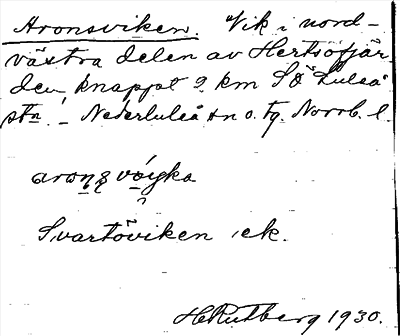 Aronsviken. Vik i nord-
västra delen av Hertsöfjär-
den knappt 2 km SÖ Luleå
stn. – Nederluleå sn o. tg. Norrb. l.
Svartöviken ek.
H Rutberg 1930.